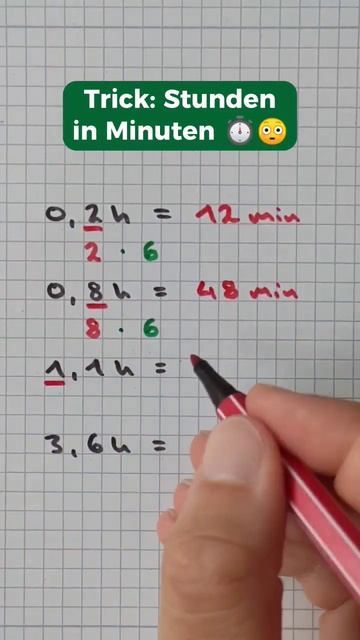 Trick: Stunden
in Minuten ⏱️😳
0,2h = 12 min
2 · 6
0,8h = 48 min
8 · 6
1,1h =
3,6h =